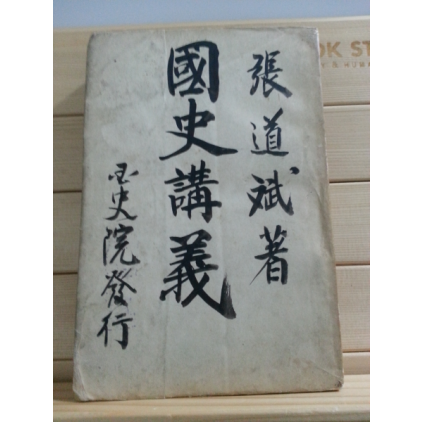 張道斌著
國史講義
国史院發行
OK ST